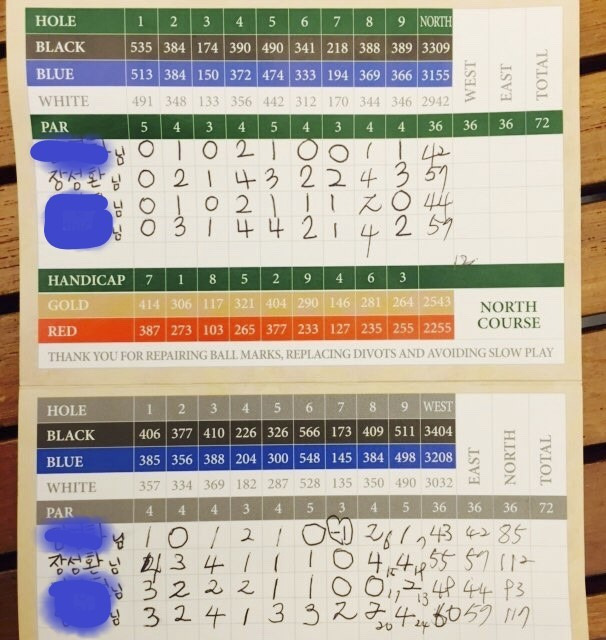 HOLE 1 2 3 4 5 6 7 8 9 NORTH
BLACK 535 384 174 390 490 341 218 388 389 3309
BLUE 513 384 150 372 474 333 194 369 366 3155 WEST EAST TOTAL
WHITE 491 348 133 356 442 312 170 344 346 2942
PAR 5 4 3 4 5 4 3 4 4 36 36 36 72
님 0 1 0 2 1 0 0 1 1 42
장성환 님 0 2 1 4 3 2 2 4 3 57
님 0 1 0 2 1 1 1 2 0 44
님 0 3 1 4 4 2 1 4 2 57
HANDICAP 7 1 8 5 2 9 4 6 3
GOLD 414 306 117 321 404 290 146 281 264 2543 NORTH
RED 387 273 103 265 377 233 127 235 255 2255 COURSE
THANK YOU FOR REPAIRING BALL MARKS, REPLACING DIVOTS AND AVOIDING SLOW PLAY
HOLE 1 2 3 4 5 6 7 8 9 WEST
BLACK 406 377 410 226 326 566 173 409 511 3404
BLUE 385 356 388 204 300 548 145 384 498 3208 EAST NORTH TOTAL
WHITE 357 334 369 182 287 528 135 350 490 3032
PAR 4 4 4 3 4 5 3 4 5 36 36 36 72
님 1 0 1 2 1 0 -1 2 1 43 42 85
장성환 님 4 3 4 1 1 1 0 4 4 55 57 112
님 3 2 2 2 1 1 0 0 2 49 44 93
님 3 2 4 1 3 3 2 2 4 60 57 117